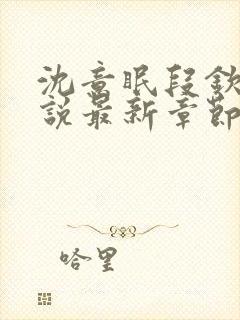 沈意眠段欽
說最新章節
哈里